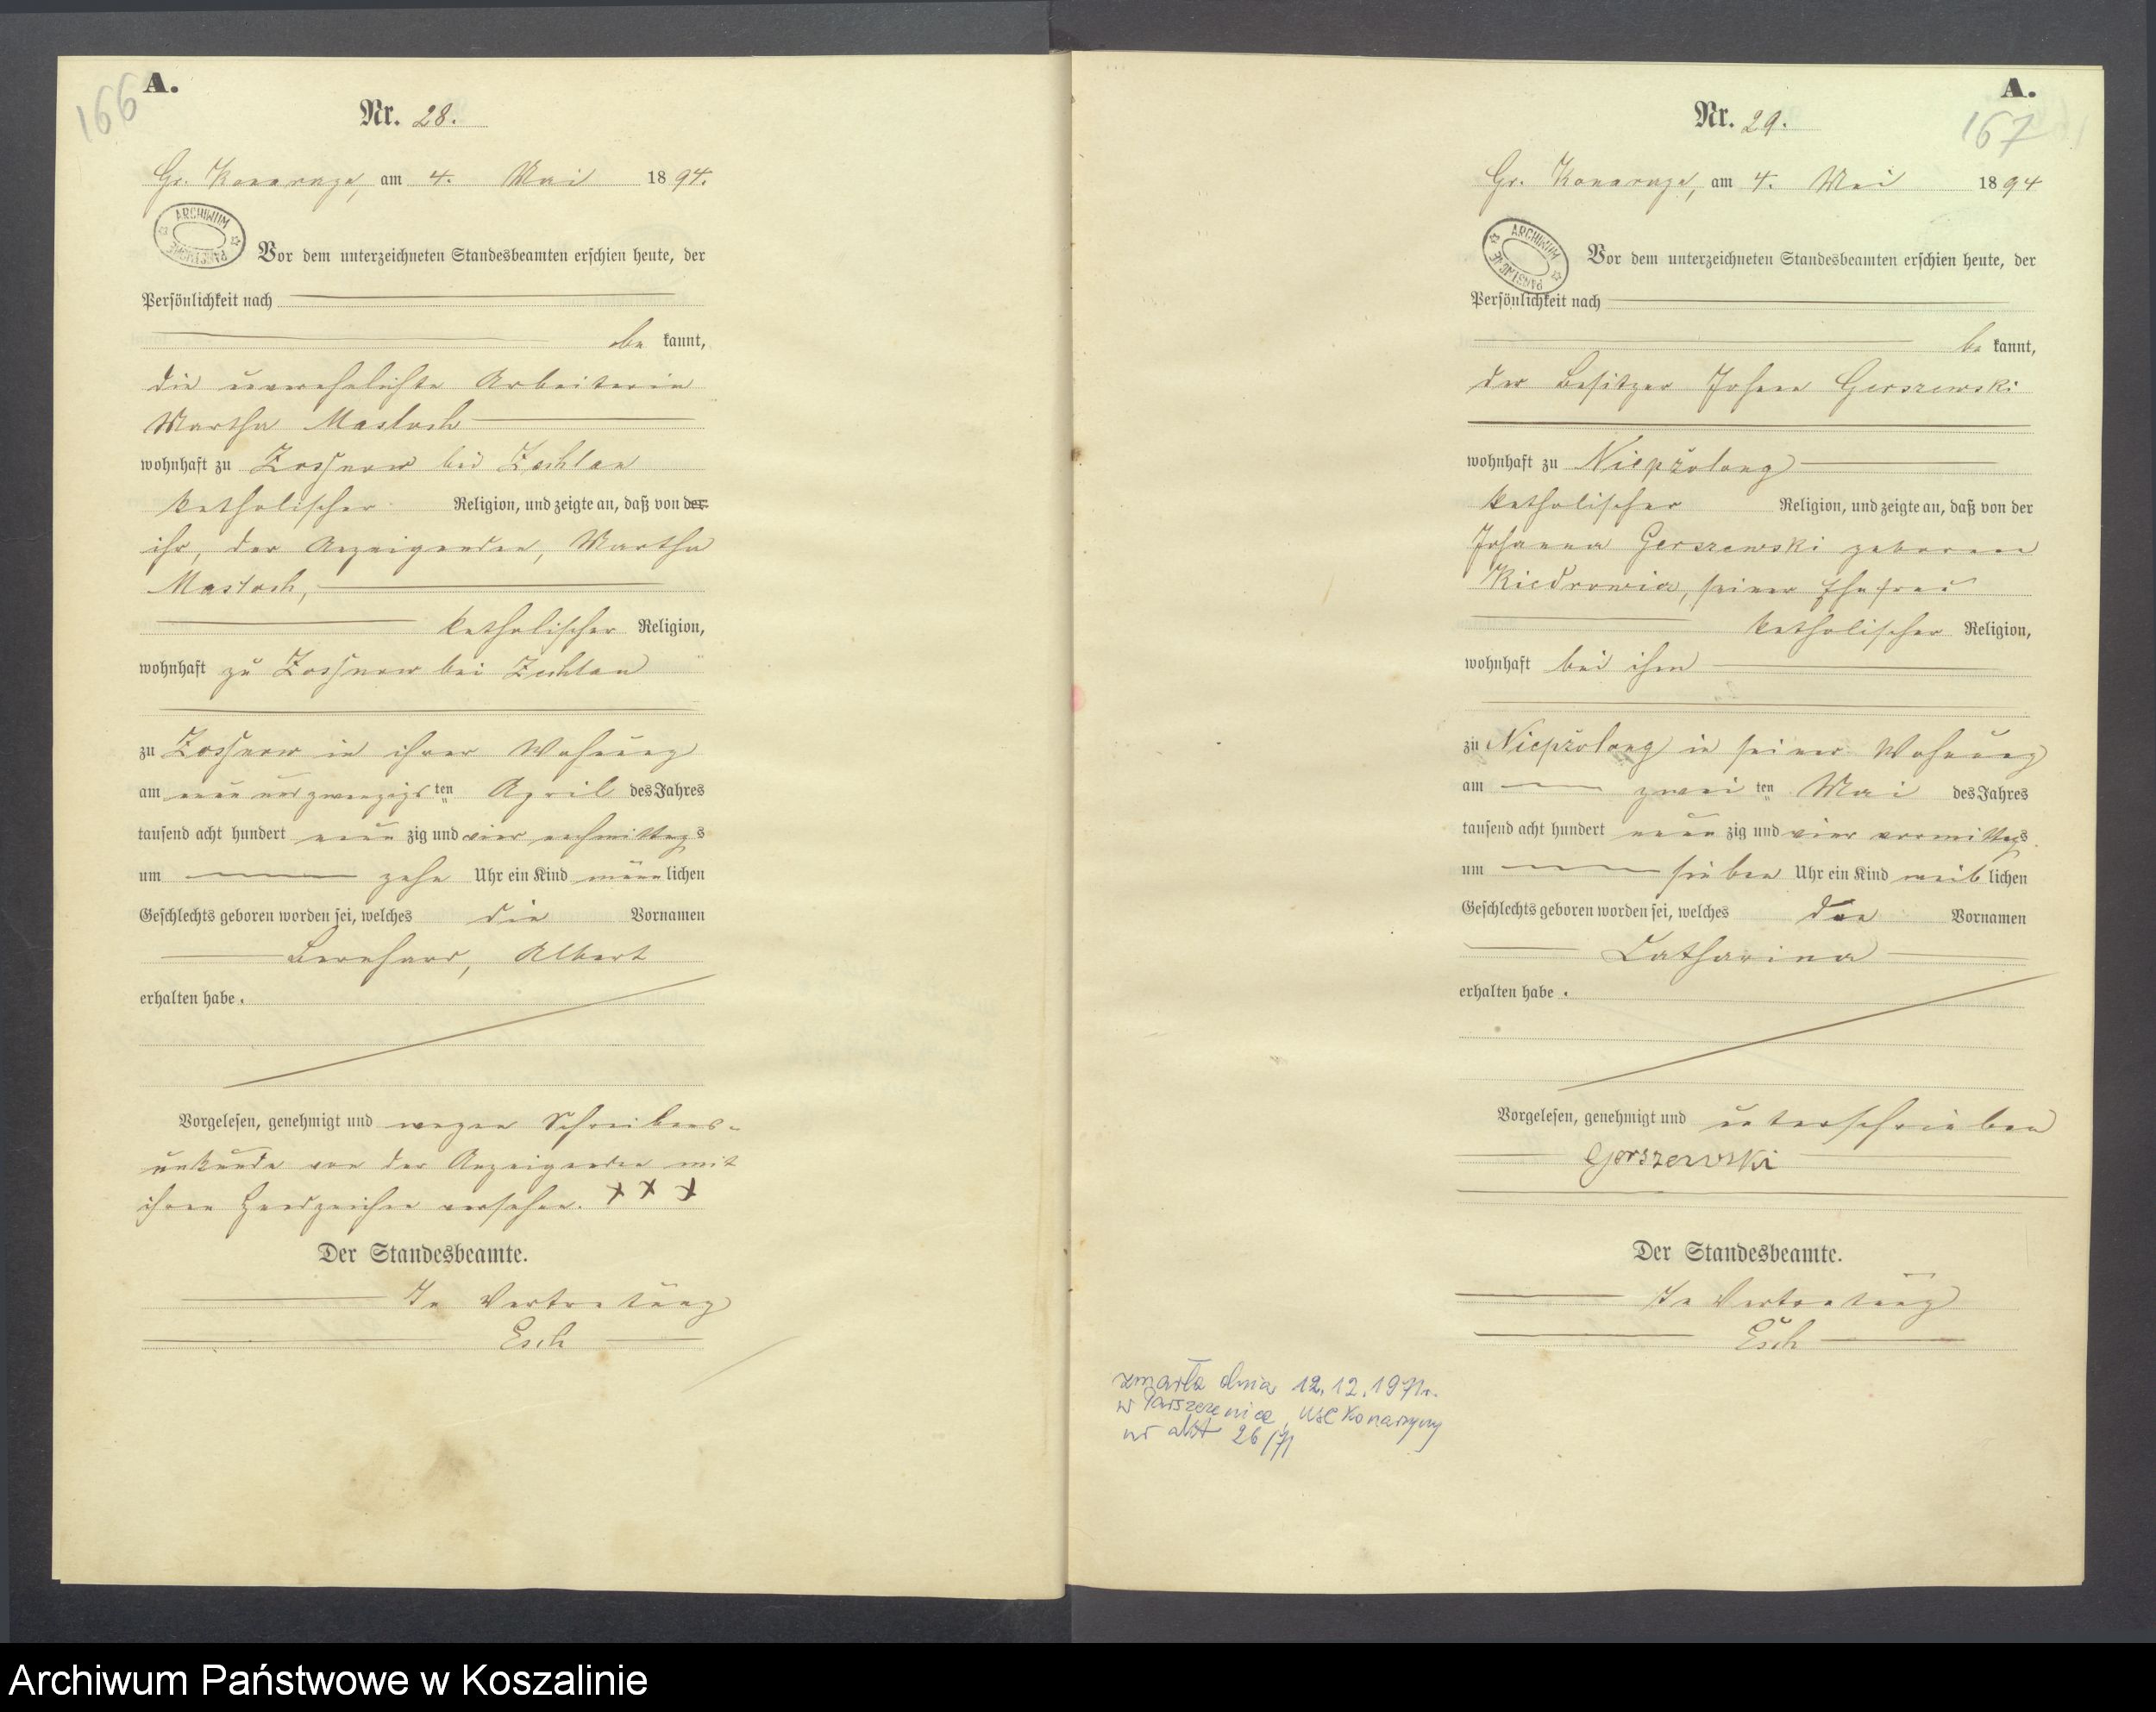 166
A.
Nr. 28.
Gr. Konarzyn, am 4. Mai 1894.
ARCHIWUM PAŃSTWOWE
Vor dem unterzeichneten Standesbeamten erschien heute, der
Persönlichkeit nach
be kannt,
die unverehelichte Arbeiterin
Martha
wohnhaft zu bei
katholischer Religion, und zeigte an, daß von der
ihr, der Anzeigenden, Martha
katholischer Religion,
wohnhaft zu bei
zu in ihrer Wohnung
am neun und zwanzigsten April des Jahres
tausend acht hundert neun zig und vier nachmittags
um zehn Uhr ein Kind männlichen
Geschlechts geboren worden sei, welches die Vornamen
Bernhard, Albert
erhalten habe.
Vorgelesen, genehmigt und wegen Schreibens-
unkunde von der Anzeigenden mit
ihren Handzeichen versehen. x x x
Der Standesbeamte.
In Vertretung
Esch
A.
167
Nr. 29.
Gr. Konarzyn, am 4. Mai 1894
ARCHIWUM PAŃSTWOWE
Vor dem unterzeichneten Standesbeamten erschien heute, der
Persönlichkeit nach
be kannt,
der Besitzer Johann Gerszewski
wohnhaft zu Niepřolong
katholischer Religion, und zeigte an, daß von der
Johanna Gerszewski geborene
seiner Ehefrau
katholischer Religion,
wohnhaft bei ihm
zu Niepřolong in seiner Wohnung
am zwei ten Mai des Jahres
tausend acht hundert neun zig und vier vormittags
um sieben Uhr ein Kind weiblichen
Geschlechts geboren worden sei, welches den Vornamen
Catharina
erhalten habe.
Vorgelesen, genehmigt und unterschrieben
Gerszewski
Der Standesbeamte.
In Vertretung
Esch
zmarła dnia 12.12.1971r.
w USC Konarzyny
nr akt 26/71
Archiwum Państwowe w Koszalinie